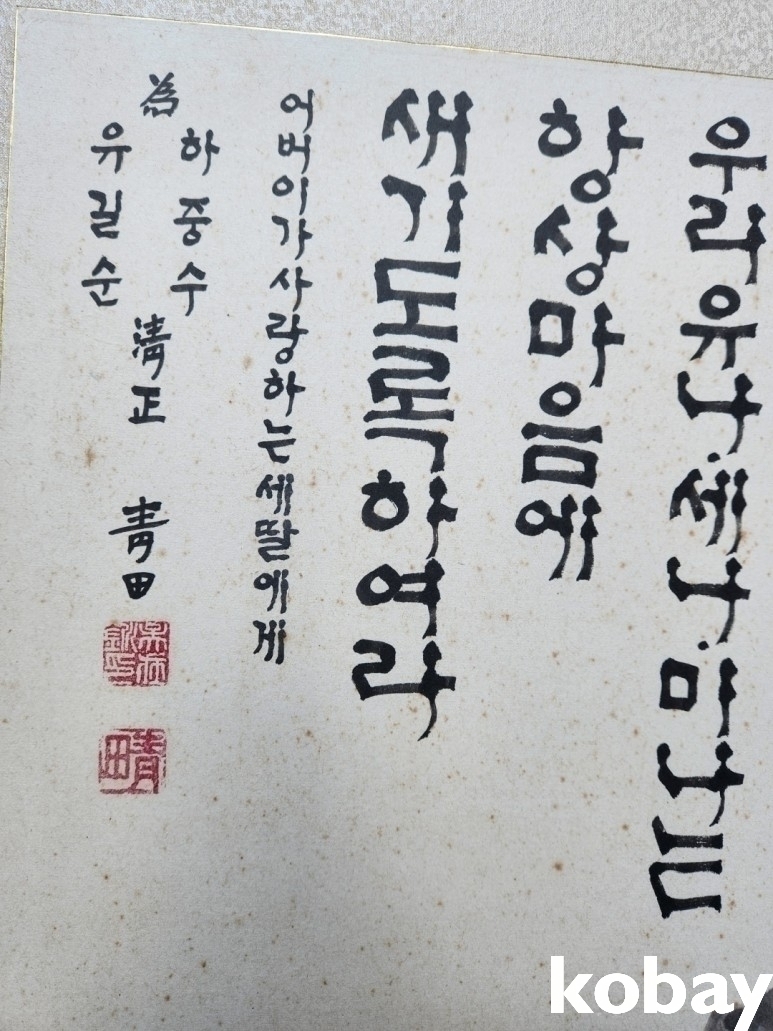 우리 유나·세나·미나는
항상 마음에
새기도록 하여라
어버이가 사랑하는 세 딸에게
為
하중수
유길순
清正
青田
青田
kobay